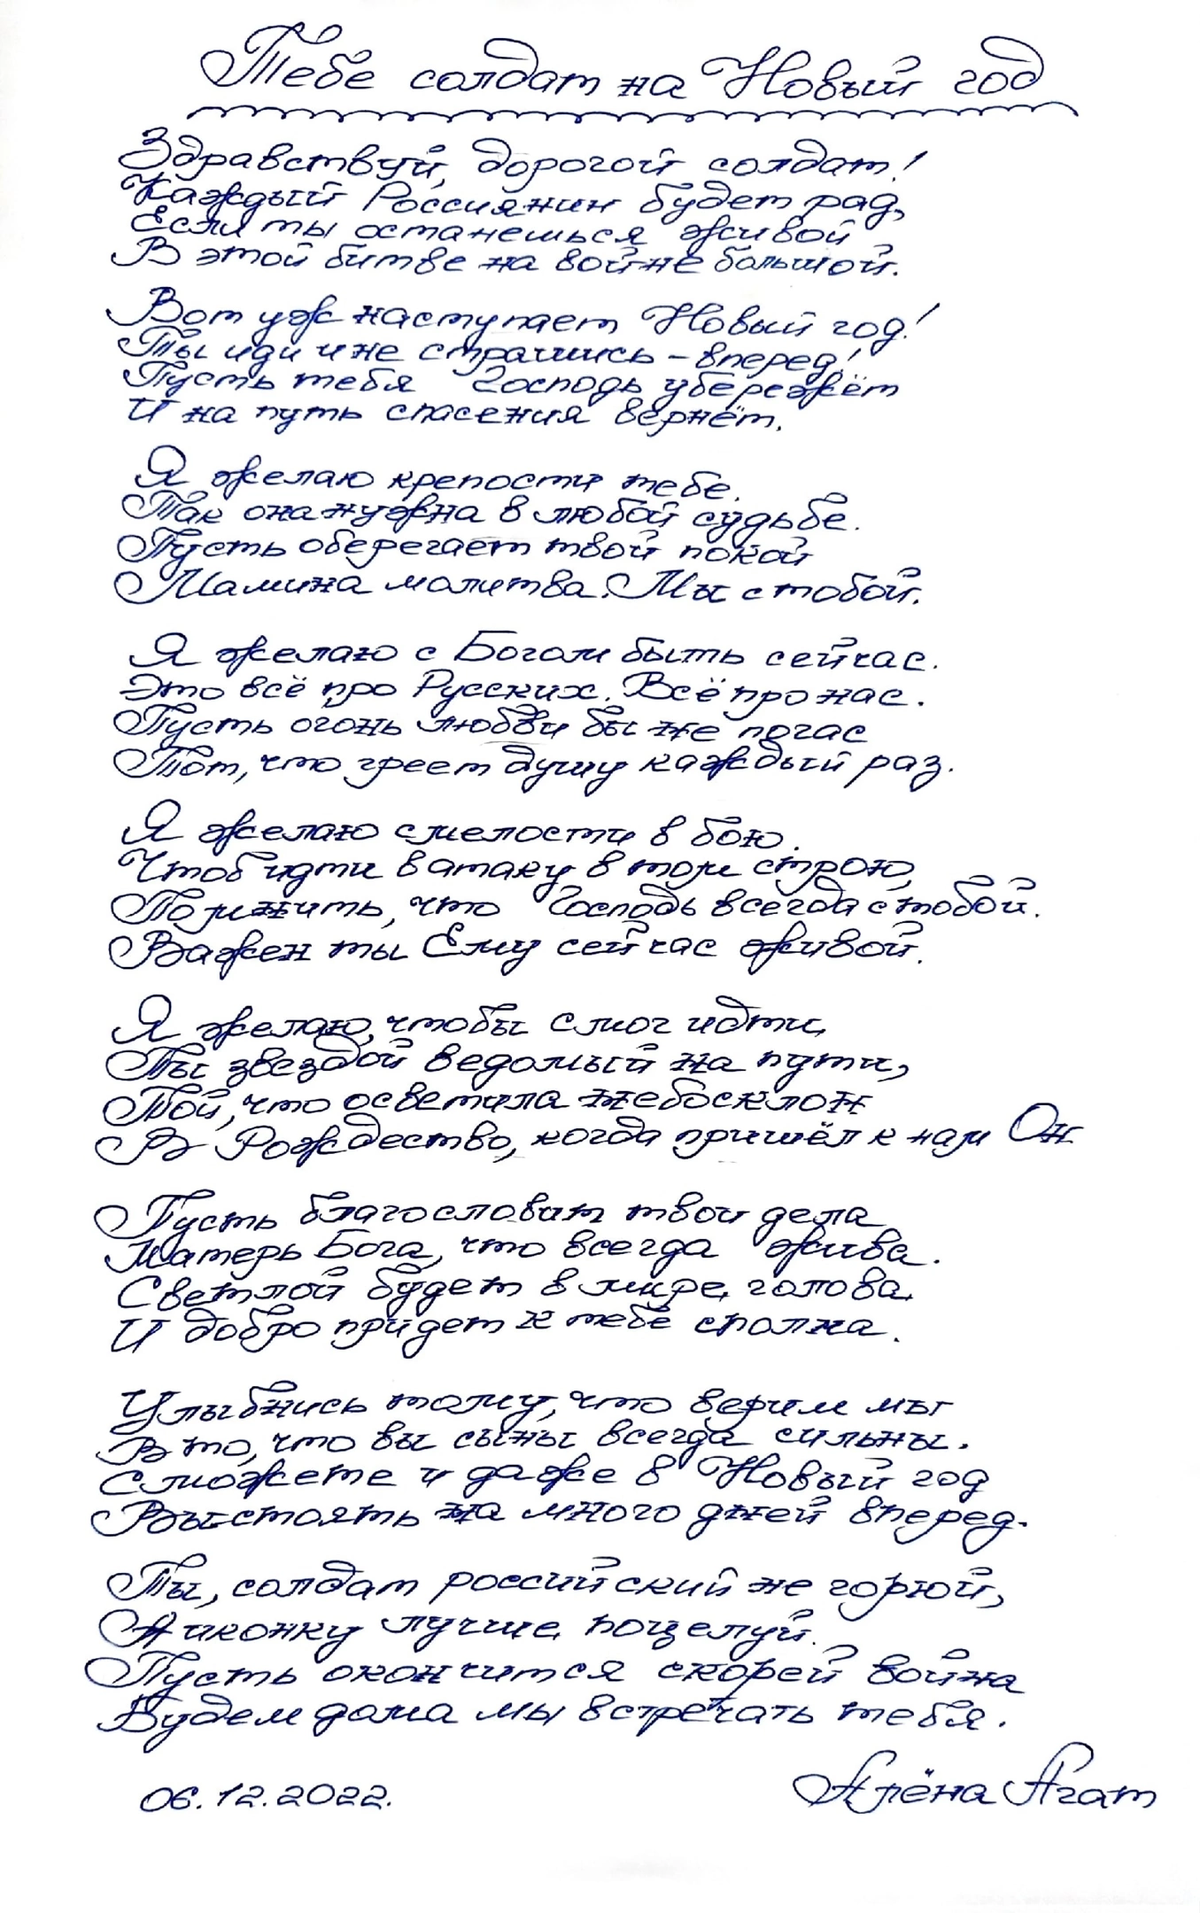 Тебе солдат на Новый год
Здравствуй, дорогой солдат!
Каждый Россиянин будет рад,
Если ты останешься живой
В этой битве на войне большой.
Вот уж наступает Новый год!
Ты иди и не страшись – вперед!
Пусть тебя Господь убережёт
И на путь спасения вернёт.
Я желаю крепости тебе.
Так она нужна в любой судьбе.
Пусть оберегает твой покой
Мамина молитва. Мы с тобой.
Я желаю с Богом быть сейчас.
Это всё про Русских. Всё про нас.
Пусть огонь любви бы не погас
Тот, что греет душу каждый раз.
Я желаю смелости в бою.
Чтоб идти в атаку в том строю,
Помнить, что Господь всегда с тобой.
Важен ты Ему сейчас живой.
Я желаю, чтобы смог идти,
Ты звездой ведомый на пути,
Той, что осветила небосклон
В Рождество, когда пришёл к нам Он.
Пусть благословит твои дела
Матерь Бога, что всегда жива.
Светлой будет в мире голова
И добро придет к тебе сполна.
Улыбнись тому, что верим мы
В то, что вы сыны всегда сильны.
Сможете и даже в Новый год
Выстоять на много дней вперед.
Ты, солдат российский не горюй,
А иконку лучше поцелуй.
Пусть окончится скорей война
Будем дома мы встречать тебя.
06.12.2022. Алёна Агат